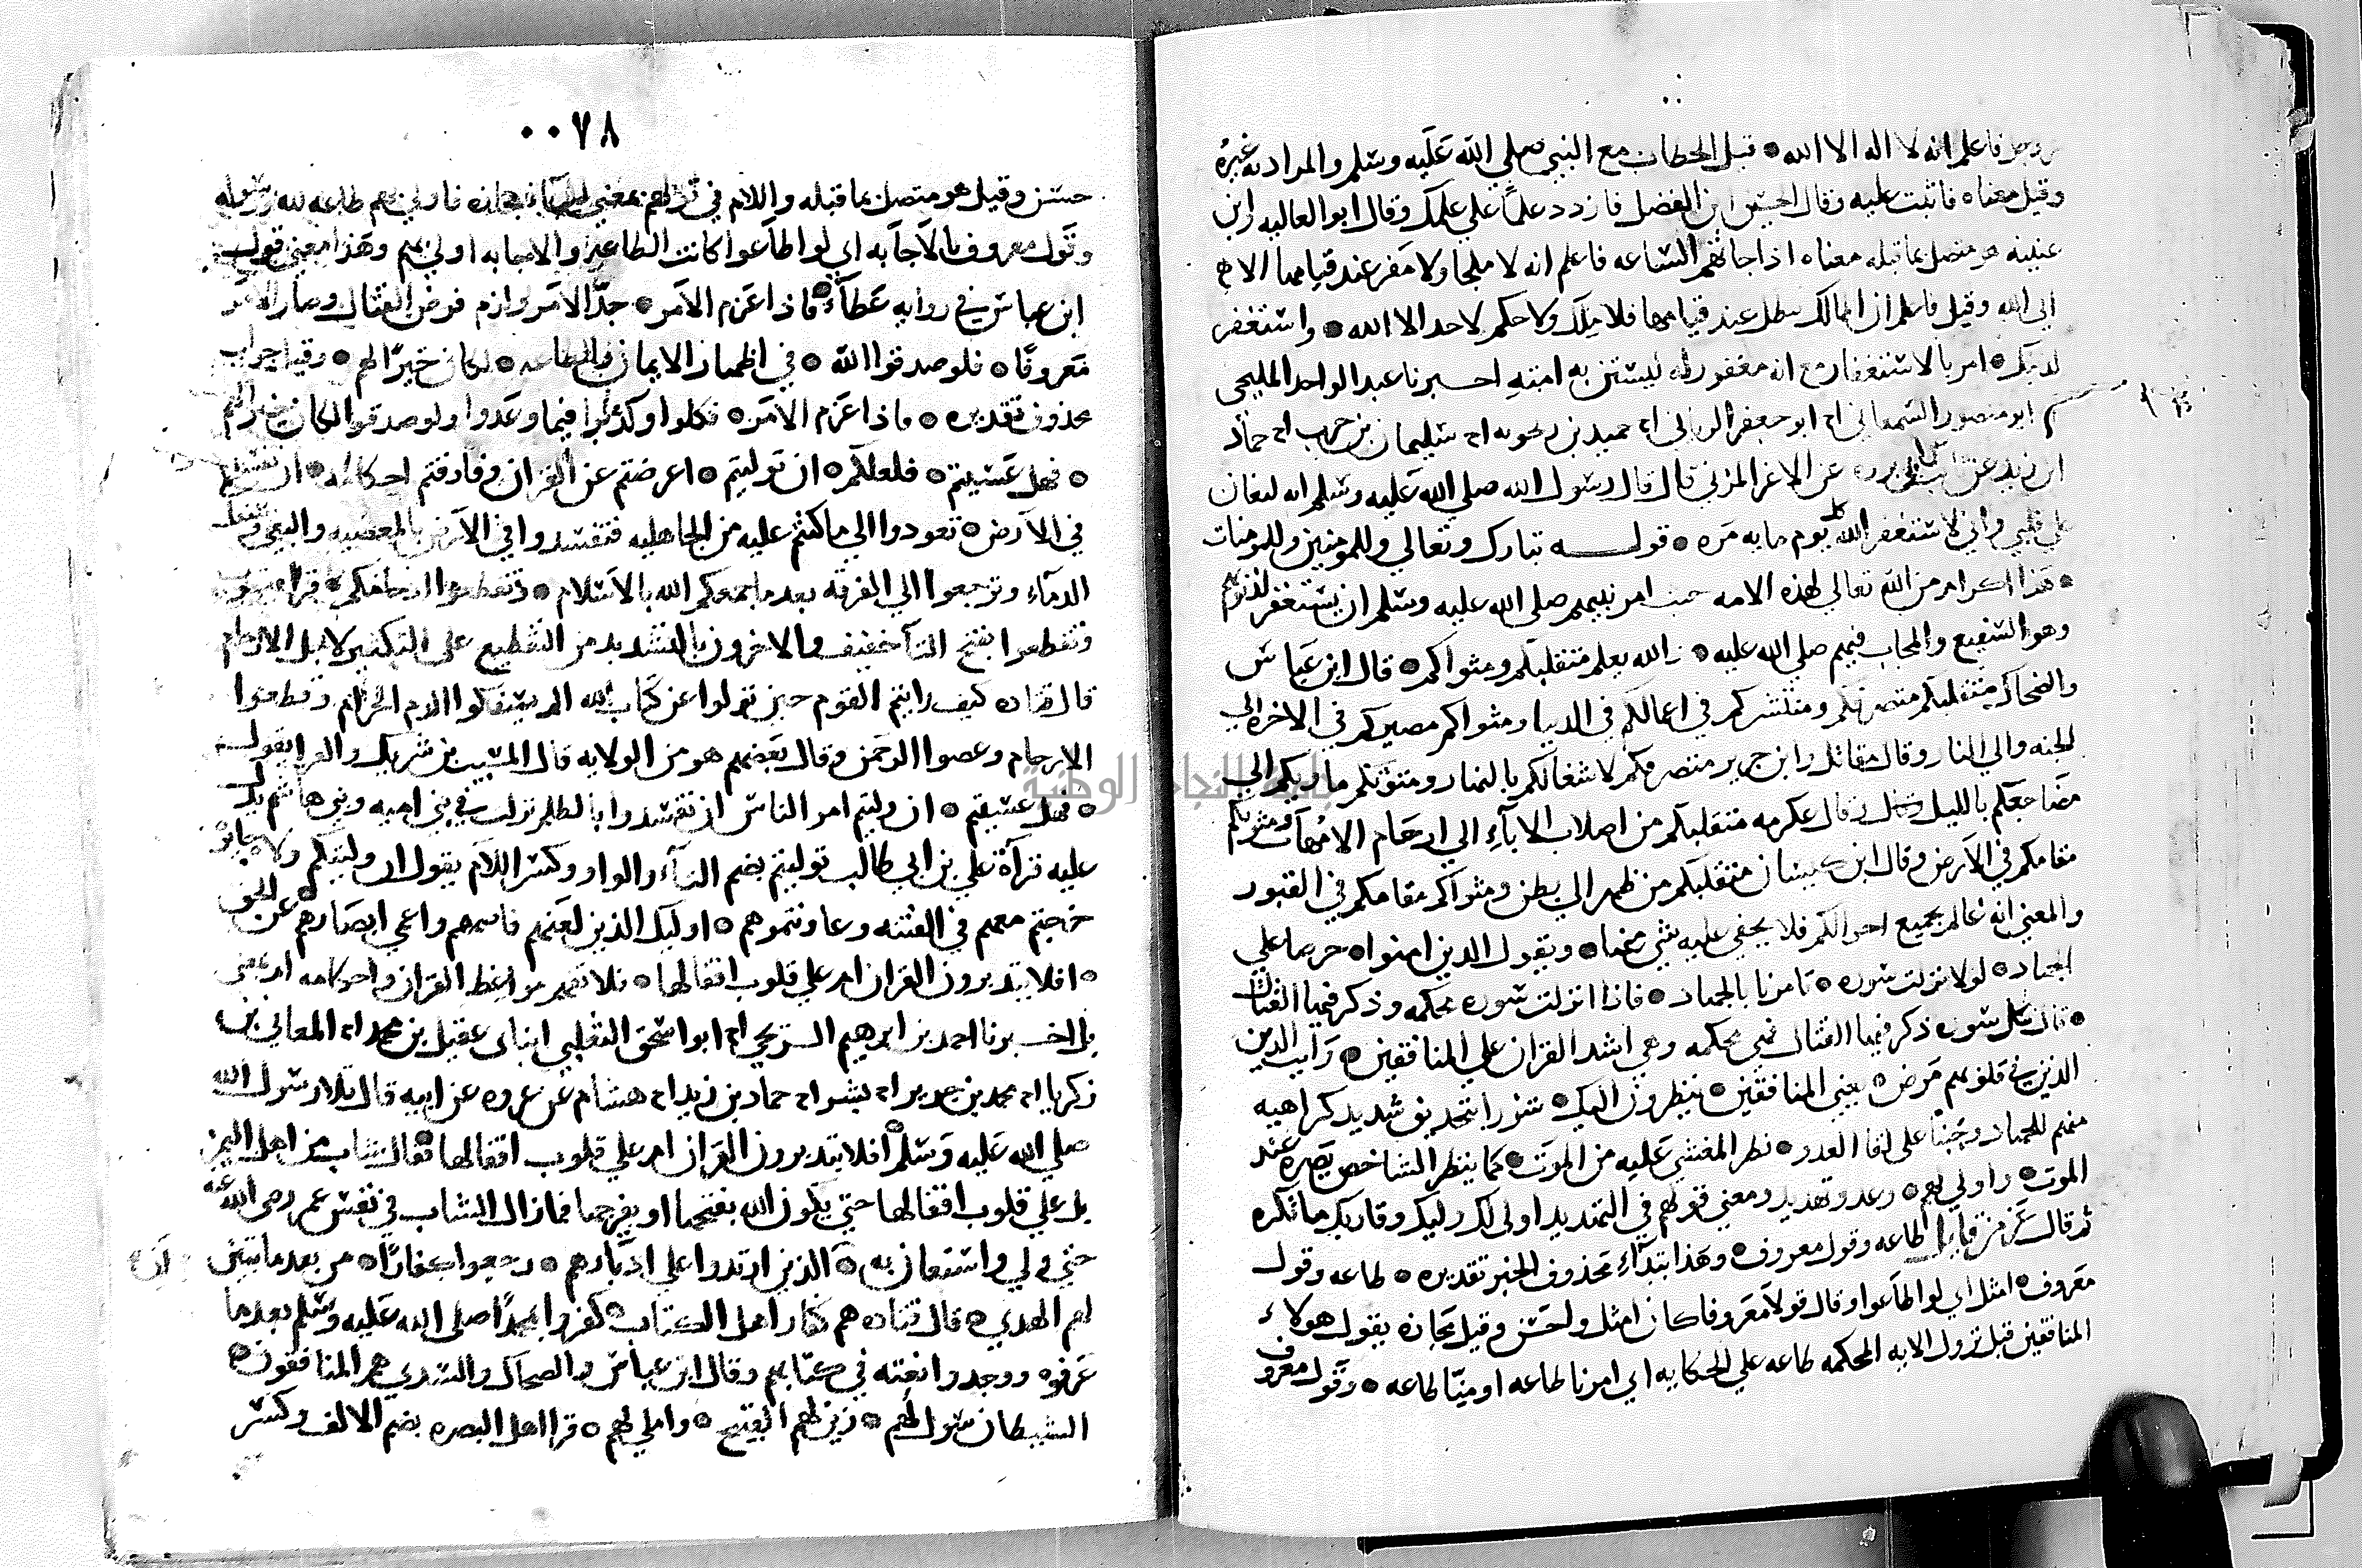 فاعلم انه لا اله الا الله ه قيل الخطاب مع النبي صلي الله عليه وسلم والمراد به غيره
وقيل معناه فاثبت عليه وقال الحسين ابن الفضل فازدد علما علي علمك وقال ابو العاليه وابن
عيينه هو متصل بما قبله معناه اذا جاتهم الساعه فاعلم انه لا ملجا ولا مفر عند قيامها الا
الي الله وقيل فاعلم ان الممالك تبطل عند قيامها فلا ملك ولا حكم لاحد الا الله ه واستغفر
لذنبك ه امر بالاستغفار مع انه مغفور له ليستن به امته اخبرنا عبد الواحد المليحي
ابو منصور السمعاني اء ابو جعفر الرياني اء حميد بن زنجويه اء سليمان بن حرب اء حماد
ابن زيد عن ثابت عن ابي برده عن الاغر المزني قال قال رسول الله صلي الله عليه وسلم انه ليغان
علي قلبي واني لاستغفر الله كل يوم مايه مره ه قوله تبارك وتعالي وللمومنين وللمومنات
ه هذا اكرام من الله تعالي لهذه الامه حيث امر نبيهم صلي الله عليه وسلم ان يستغفر لذنوبهم
وهو الشفيع والمجاب فيهم صلي الله عليه ه والله يعلم متقلبكم ومثواكم ه قال ابن عباس
والضحاك متقلبكم متصرفكم ومنتشركم في اعمالكم في الدنيا ومثواكم مصيركم في الاخره الي
الجنه والي النار وقال مقاتل وابن جرير متصرفكم لاشغالكم بالنهار ومثواكم ماويكم الي
مضاجعكم بالليل وقال عكرمه متقلبكم من اصلاب الاباء الي ارحام الامهات ومثويكم
مقامكم في الارض وقال ابن كيسان متقلبكم من ظهر الي بطن ومثواكم مقامكم في القبور
والمعني انه عالم بجميع احوالكم فلا يخفي عليه شي منها ه ويقول الذين امنوا ه حرصا علي
الجهاد ه لولا نزلت سوره ه تامرنا بالجهاد ه فاذا انزلت سوره محكمه وذكر فيها القتال
ه قال كل سوره ذكر فيها القتال فهي محكمه وهي اشد القران علي المنافقين ه رايت الذين
الذين في قلوبهم مرض ه يعني المنافقين ه ينظرون اليك ه شزرا بتحديق شديد كراهيه
منهم للجهاد وجبنا علي لقا العدو ه نظر المغشي عليه من الموت ه كما ينظر الشاخص بصره عند
الموت ه فاولي لهم ه وعد وتهديد ومعني قولهم في التهديد اولي لك وليك وقاربك ما تكره
ثم قال عز من قايل طاعه وقول معروف ه وهذا ابتداء محذوف الخبر تقديره ه طاعه وقول
معروف ه امثل اي لو اطاعوا وقال قولا معروفا كان امثل واحسن وقيل مجازه يقول هولاء
المنافقين قبل نزول الايه المحكمه طاعه علي الحكايه اي امرنا طاعه او منا طاعه ه وقول معروف
٠٠٧٨
حسن وقيل هو متصل بما قبله واللام في قولهم بمعني مجازه فاولي بهم طاعه لله ورسوله
وقول معروف بالاجابه اي لو اطاعوا كانت الطاعه والاجابه اولي بهم وهذا معني قول
ابن عباس في روايه عطاء ه فاذا عزم الامر ه جد الامر ولزم فرض القتال وصار الامر
معروفا ه فلو صدقوا الله ه في اظهار الايمان والطاعه ه لكان خيرا لهم ه وقيل جواب
محذوف تقديره ه فاذا عزم الامر ه نكلوا وكذبوا فيما وعدوا ولو صدقوا لكان خيرا لهم
ه فهل عسيتم ه فلعلكم ه ان توليتم ه اعرضتم عن القران وفارقتم احكامه ه ان تفسدوا
في الارض ه تعودوا الي ما كنتم عليه من الجاهليه فتفسدوا في الارض بالمعصيه والبغي وسفك
الدماء وترجعوا الي الفرقه بعد ما جمعكم الله بالاسلام ه وتقطعوا ارحامكم ه قرا يعقوب
وتقطعوا بفتح التا خفيف والاخرون بالتشديد من التقطيع علي التكثير لاجل الارحام
قال قتاده كيف رايتم القوم حين تولوا عن كتاب الله الم يسفكوا الدم الحرام وقطعوا
الارحام وعصوا الرحمن وقال بعضهم هو من الولايه قال المسيب بن شريك والفرا يقول
ه فهل عسيتم ه ان وليتم امر الناس ان تفسدوا بالظلم نزلت في بني اميه وبني هاشم يدل
عليه قراة علي بن ابي طالب توليتم بضم التاء والواو وكسر اللام يقول ان وليتكم ولاه جايره
خرجتم معهم في الفتنه وعاونتموهم ه اوليك الذين لعنهم فاصمهم واعمي ابصارهم ه عن الحق
ه افلا يتدبرون القران ام علي قلوب اقفالها ه فلا تفهم مواعظ القران واحكامه ام بمعني
بل اخبرنا احمد بن ابرهيم الشريحي اء ابو اسحق الثعلبي ابناى عقيل بن محمد اء المعافي بن
زكريا اء محمد بن جرير اء بشر اء حماد بن زيد اء هشام عن عروه عن ابيه قال تلا رسول الله
صلي الله عليه وسلم افلا يتدبرون القران ام علي قلوب اقفالها ه فقال شاب من اهل اليمن
بل علي قلوب اقفالها حتي يكون الله يفتحها او يفرجها فمازال الشاب في نفس عمر رضي الله عنه
حتي ولي واستعان به ه الذين ارتدوا علي ادبارهم ه رجعوا كفارا ه من بعد ما تبين
لهم الهدي ه قال قتاده هم كفار اهل الكتاب كفروا بمحمد صلي الله عليه وسلم بعد ما
عرفوه ووجدوا نعته في كتابهم وقال ابن عباس والضحاك والسدي هم المنافقون ه
الشيطان سول لهم ه زين لهم القبيح ه واملي لهم ه قرا اهل البصره بضم الالف وكسر
جامعة النجاح الوطنية